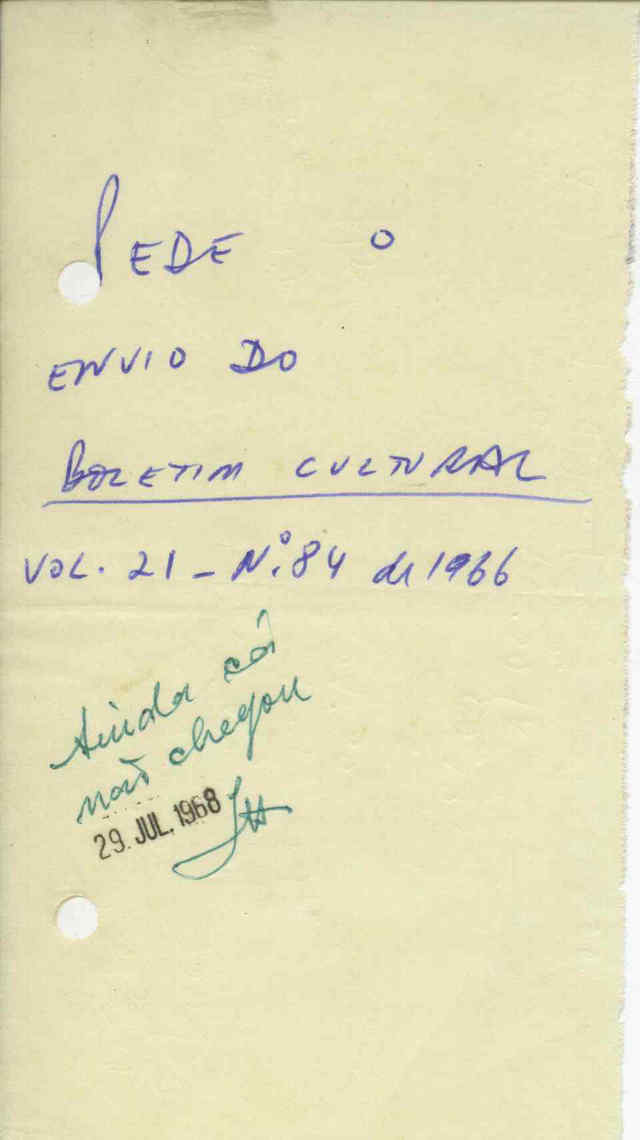 PEDE O
ENVIO DO
BOLETIM CULTURAL
VOL. 21 - Nº. 84 de 1966
Ainda cá
não chegou
29. JUL. 1968